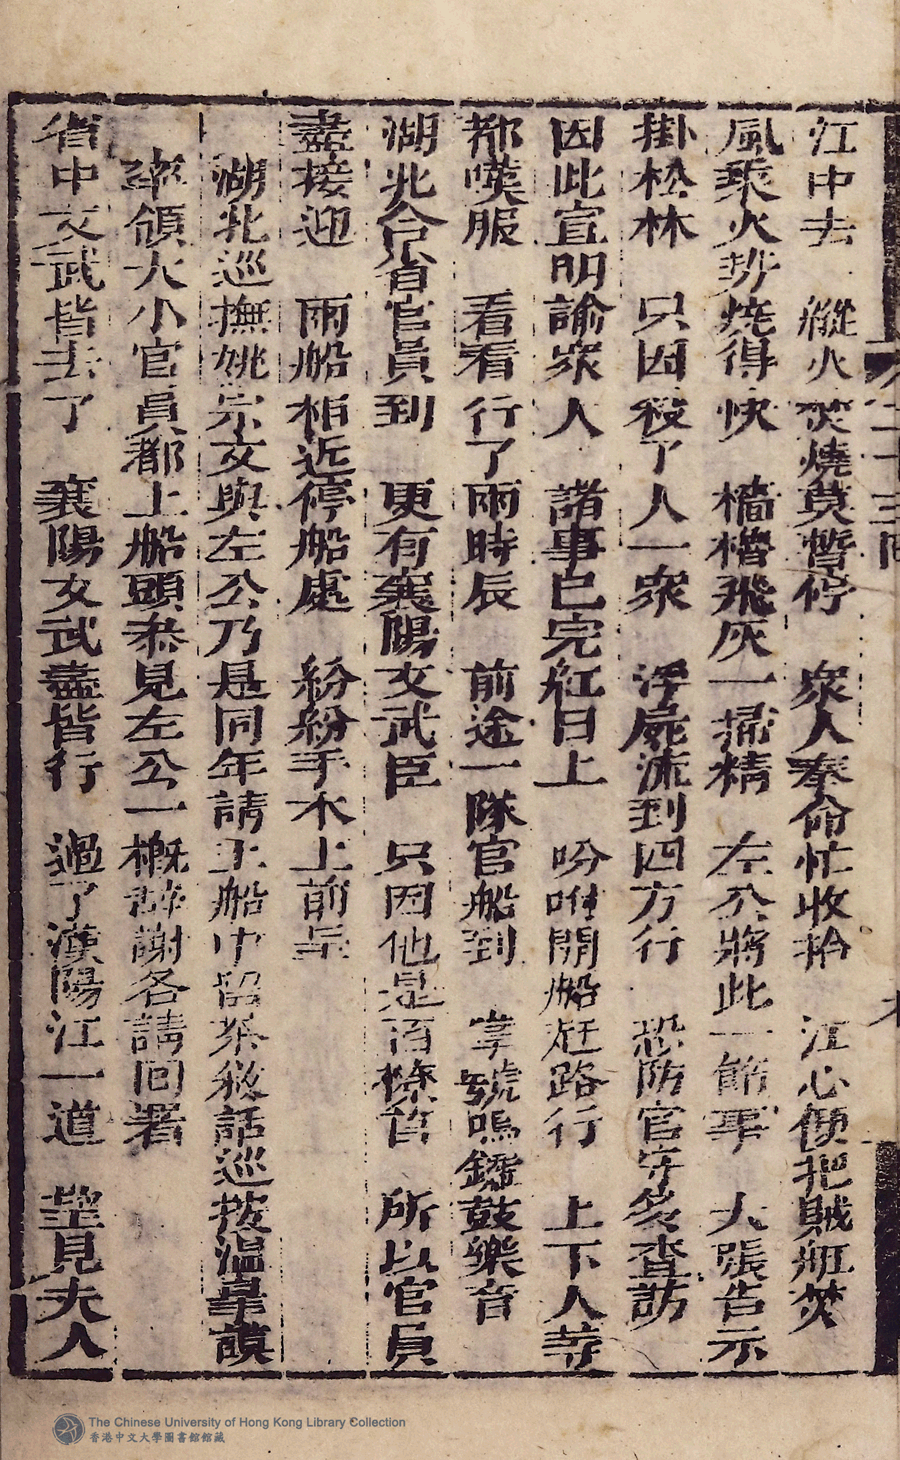 江中去　縱火焚燒莫暫停　衆人奉命忙收拾　江心便把賊舡焚
風乘火势燒得快　檣櫓飛灰一掃精　左公將此一節事　大張告示
掛松林　只因殺了人一衆　浮屍流到四方行　恐防官宰多查訪
因此宣明諭衆人　諸事已完紅日上　吩咐開船赶路行　上下人等
都嘆服　看看行了兩時辰　前途一隊官船到　掌號鳴鑼鼓樂音
湖北合省官員到　更有襄陽文武臣　只因他是百僚首　所以官員
盡接迎　兩船相近停船處　紛紛手本上前呈
湖北巡撫姚宗文與左公乃是同年請上船中留茶敘話巡按溫皐謨
率領大小官員都上船頭恭見左公一概辞謝各請回署
省中文武皆去了　襄陽文武盡皆行　過了漢陽江一道　望見夫人
二十三回
The Chinese University of Hong Kong Library Collection
香港中文大學圖書館館藏